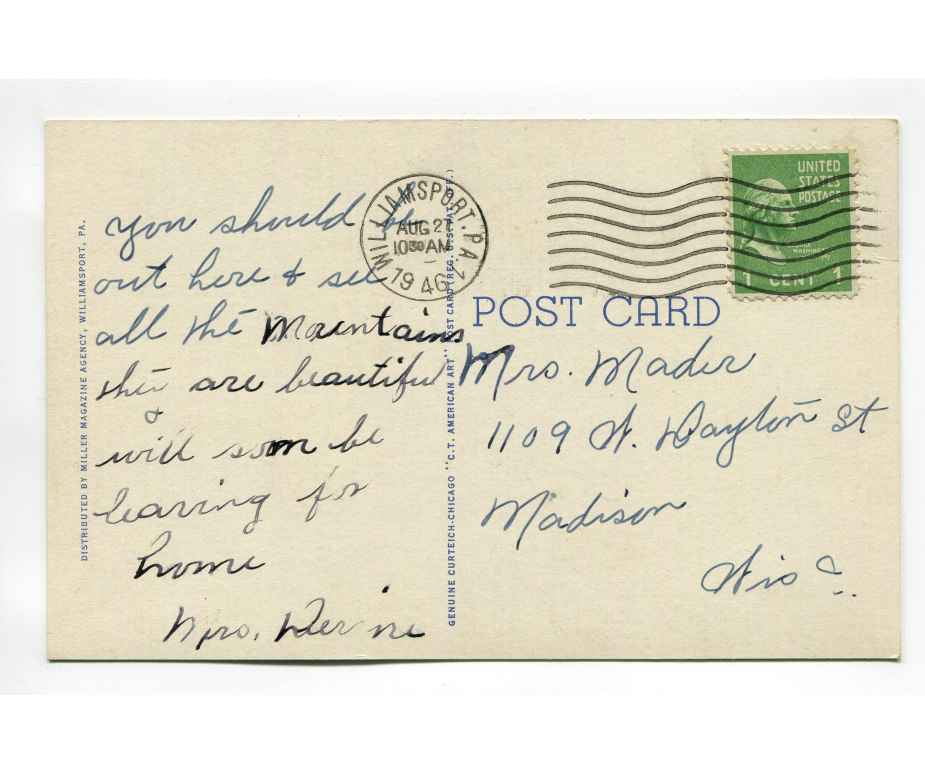 DISTRIBUTED BY MILLER MAGAZINE AGENCY, WILLIAMSPORT, PA.
You should be
out here & see
all the Mountains
they are beautiful
&
will soon be
leaving for
home
Mrs. Devine
WILLIAMSPORT. PA
AUG 27
10 30 AM
1946
GENUINE CURTEICH-CHICAGO "C.T. AMERICAN ART" POST CARD (REG. U.S. PAT. OFF.)
UNITED
STATES
POSTAGE
1 CENT 1
POST CARD
Mrs. Mader
1109 W. Dayton St
Madison
Wisc.